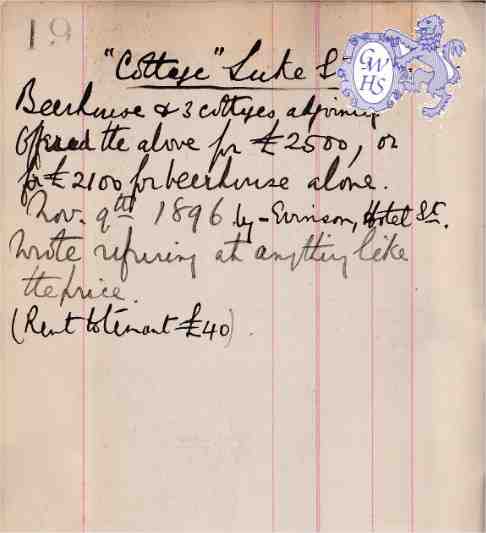 19
"Cottage" Luke S
GWHS
Beerhouse & 3 cottages adjoining
Offered the above for £2500, or
for £2100 for beerhouse alone.
Nov. 9th 1896 by - Evinson, Hotel St.
Wrote refusing at anything like
the price.
(Rent to tenant £40).